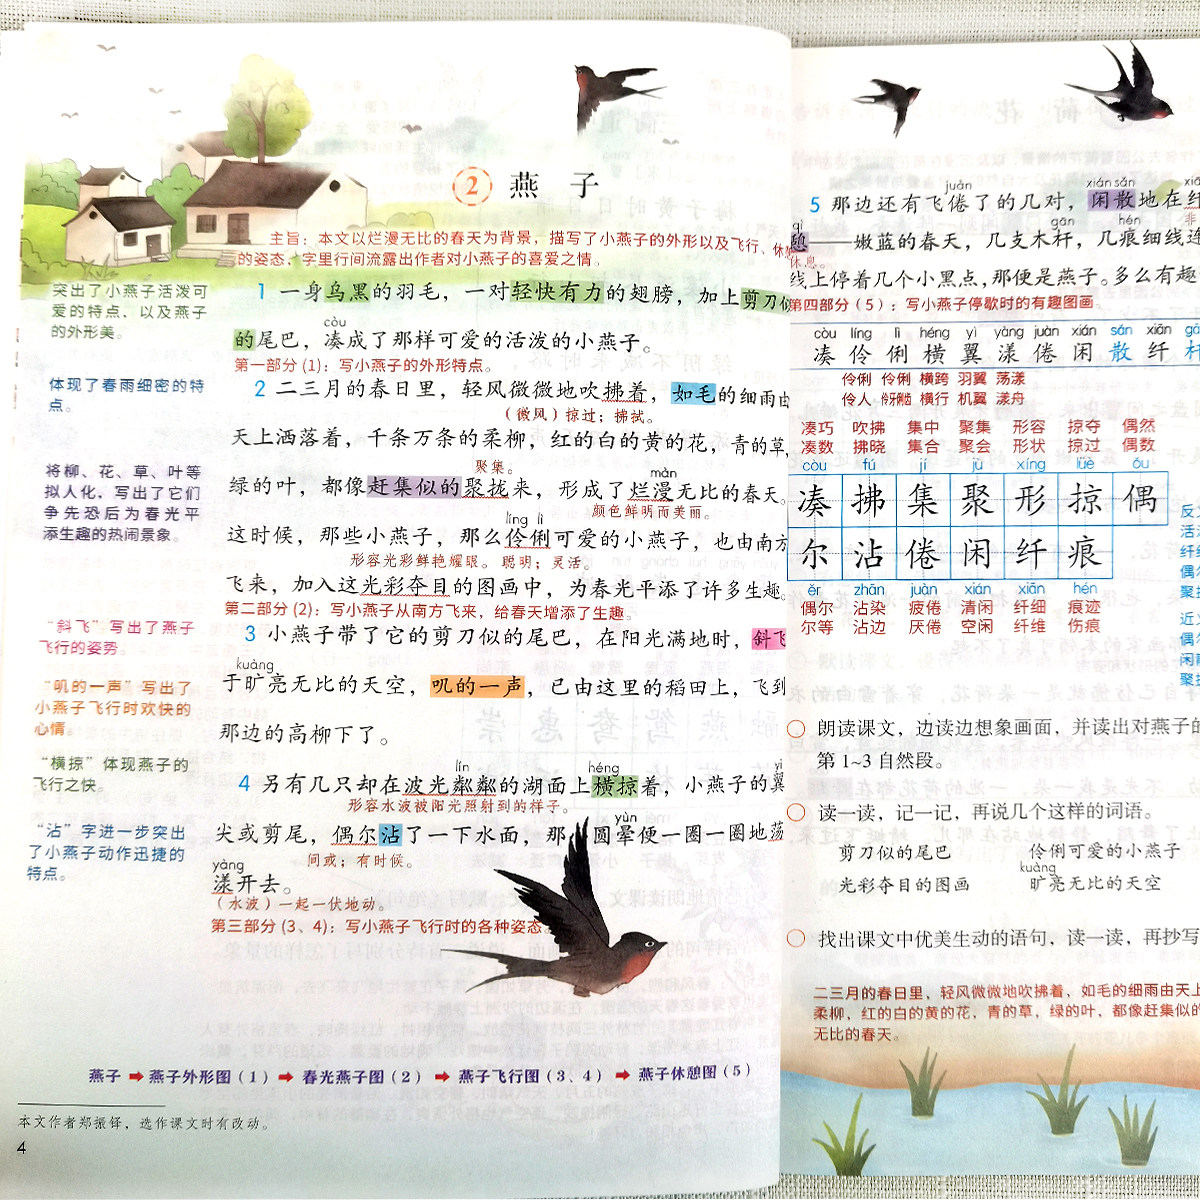 2 燕 子
主旨：本文以烂漫无比的春天为背景，描写了小燕子的外形以及飞行、休憩
的姿态，字里行间流露出作者对小燕子的喜爱之情。
突出了小燕子活泼可
爱的特点，以及燕子
的外形美。
1 一身乌黑的羽毛，一对轻快有力的翅膀，加上剪刀似
còu
的尾巴，凑成了那样可爱的活泼的小燕子。
第一部分（1）：写小燕子的外形特点。
体现了春雨细密的特
点。
2 二三月的春日里，轻风微微地吹拂着，如毛的细雨由
（微风）掠过；拂拭。
天上洒落着，千条万条的柔柳，红的白的黄的花，青的草，
聚集。
màn
将柳、花、草、叶等
拟人化，写出了它们
争先恐后为春光平
添生趣的热闹景象。
绿的叶，都像赶集似的聚拢来，形成了烂漫无比的春天。
颜色鲜明而美丽。
líng lì
这时候，那些小燕子，那么伶俐可爱的小燕子，也由南方
形容光彩鲜艳耀眼。 聪明；灵活。
飞来，加入这光彩夺目的图画中，为春光平添了许多生趣。
第二部分（2）：写小燕子从南方飞来，给春天增添了生趣。
“斜飞”写出了燕子
飞行的姿势。
3 小燕子带了它的剪刀似的尾巴，在阳光满地时，斜飞
kuàng
“叽的一声”写出了
小燕子飞行时欢快的
心情。
于旷亮无比的天空，叽的一声，已由这里的稻田上，飞到
那边的高柳下了。
“横掠”体现燕子的
飞行之快。
lín héng yì
4 另有几只却在波光粼粼的湖面上横掠着，小燕子的翼
形容水波被阳光照射到的样子。
yùn
“沾”字进一步突出
了小燕子动作迅捷的
特点。
尖或剪尾，偶尔沾了一下水面，那小圆晕便一圈一圈地荡
间或；有时候。
yàng
漾开去。
（水波）一起一伏地动。
第三部分（3、4）：写小燕子飞行时的各种姿态。
燕子➡燕子外形图（1）➡春光燕子图（2）➡燕子飞行图（3、4）➡燕子休憩图（5）
本文作者郑振铎，选作课文时有改动。
4
juàn xián sǎn
5 那边还有飞倦了的几对，闲散地在纤
qì gān hén
憩——嫩蓝的春天，几支木杆，几痕细线连
休息。
线上停着几个小黑点，那便是燕子。多么有趣
第四部分（5）：写小燕子停歇时的有趣图画。
còu líng lì héng yì yàng juàn xián sǎn xiān gā
凑 伶 俐 横 翼 漾 倦 闲 散 纤 杆
伶俐 伶俐 横跨 羽翼 荡漾
伶人 伶牙俐齿 横行 机翼 漾舟
凑巧 吹拂 集中 聚集 形容 掠夺 偶然
凑数 拂晓 集合 聚会 形状 掠过 偶数
còu fú jí jù xíng lüè ǒu
凑 拂 集 聚 形 掠 偶
尔 沾 倦 闲 纤 痕
ěr zhān juàn xián xiān hén
偶尔 沾染 疲倦 清闲 纤细 痕迹
尔等 沾边 厌倦 空闲 纤维 伤痕
反义
活泼
纤细
偶尔
聚拢
近义
偶尔
闲散
聚拢
朗读课文，边读边想象画面，并读出对燕子的
第1~3自然段。
读一读，记一记，再说几个这样的词语。
剪刀似的尾巴 伶俐可爱的小燕子
kuàng
光彩夺目的图画 旷亮无比的天空
找出课文中优美生动的语句，读一读，再抄写
二三月的春日里，轻风微微地吹拂着，如毛的细雨由天上
柔柳，红的白的黄的花，青的草，绿的叶，都像赶集似的
无比的春天。